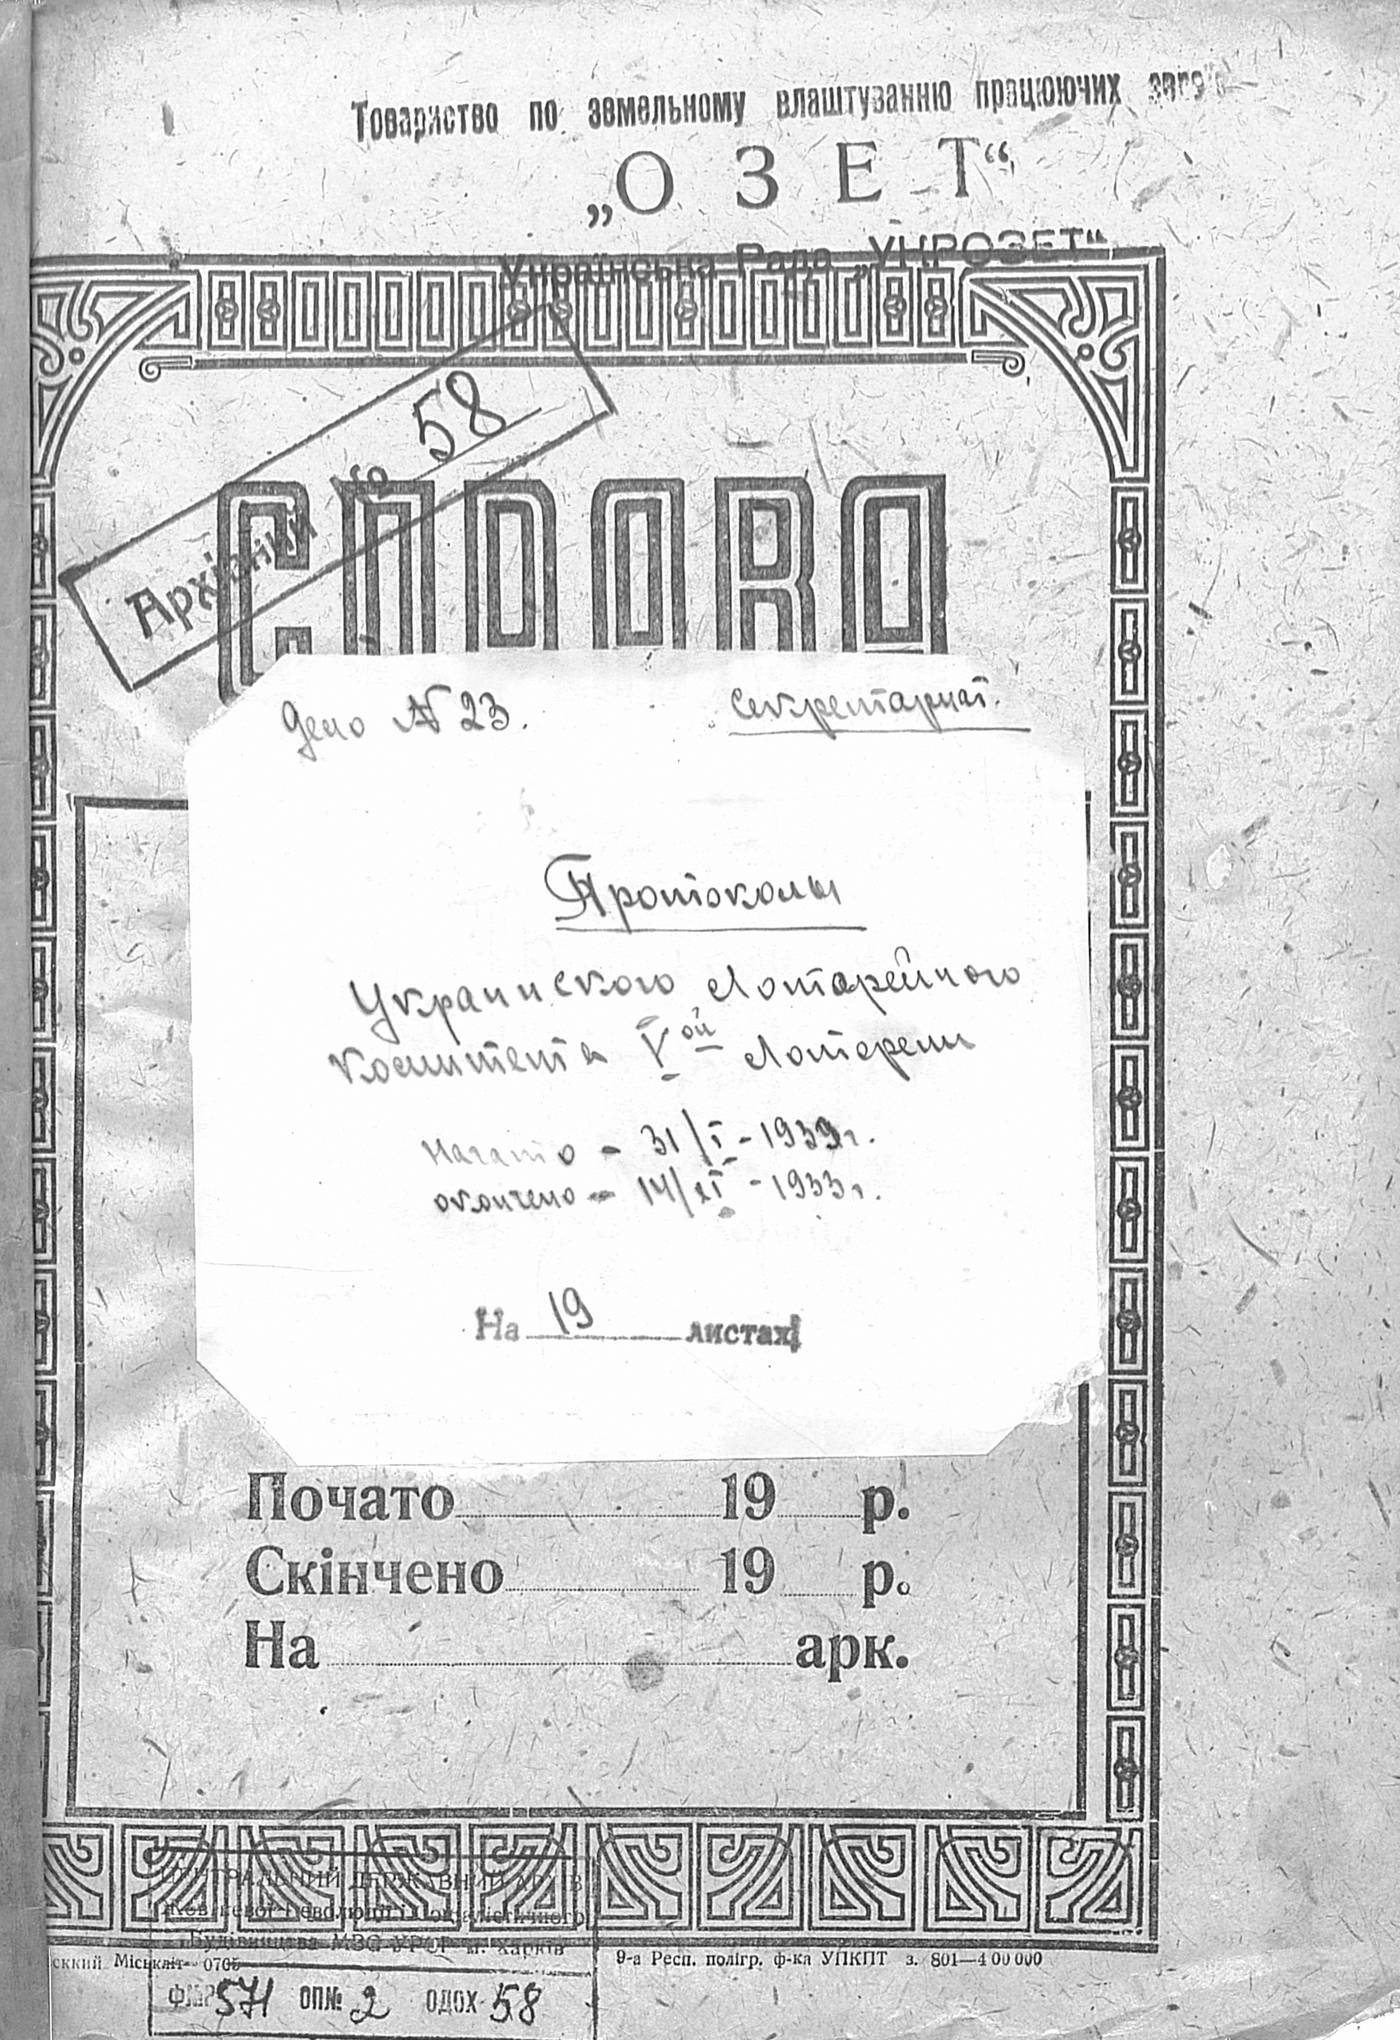 Товариство по земельному влаштуванню працюючих євреїв
„ОЗЕТ“
Українська Рада „УКРОЗЕТ“
Архівний № 58
СПРАВА
Дело № 23.
Секретариат.
Протоколы
Украинского Лотарейного
комитета Vой Лотереи
начато – 31/I – 1933г.
окончено – 14/XI – 1933г.
На 19 листах
Почато 19 р.
Скінчено 19 р.
На арк.
ЦЕНТРАЛЬНИЙ ДЕРЖАВНИЙ АРХІВ
Жовтневої Революції і соціалістичного
Будівництва МВС УРСР м. Харків
ський Міськліт 0705
9-а Респ. полігр. ф-ка УПКПТ з. 801—400000
Ф.№Р 571 ОП№ 2 ОДЗХ 58